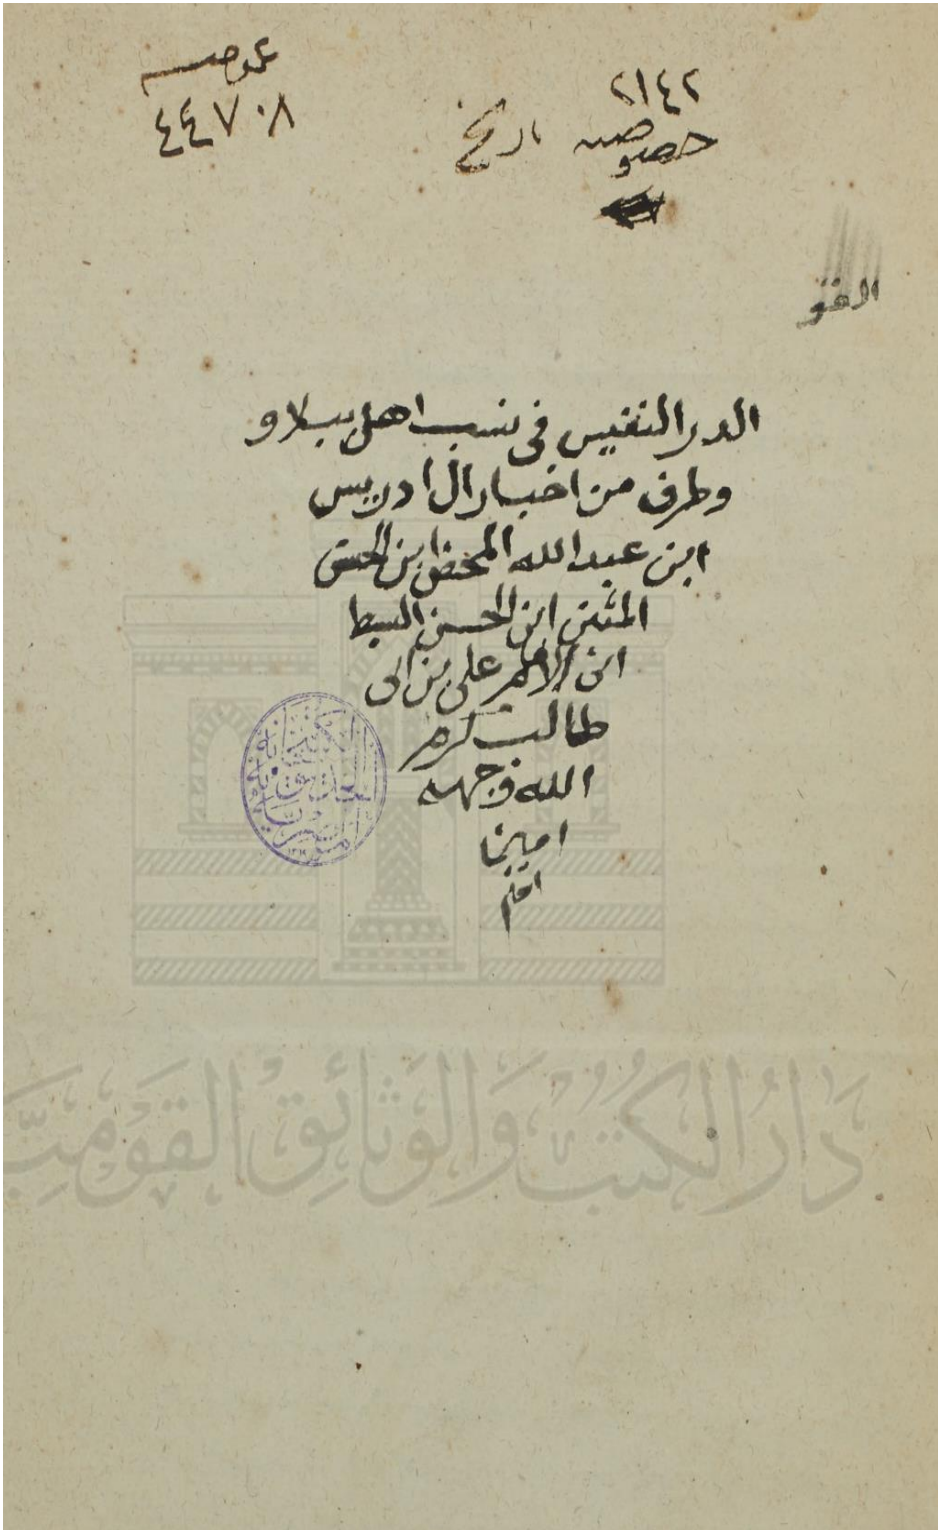 عموميه
٤٤٧٠٨
٢١٤٢
خصوصيه تاريخ
الدر النفيس فى نسب اهل ببلاو
وطرف من اخبار ال ادريس
ابن عبد الله المحض ابن الحسن
المثنى ابن الحسن السبط
ابن الامام على بن ابى
طالب كرم
الله وجهه
امين
الكتبخانه
المصريه
دَارُ الكُتُبُ وَالوَثَائِقِ القَوْمِيَّة